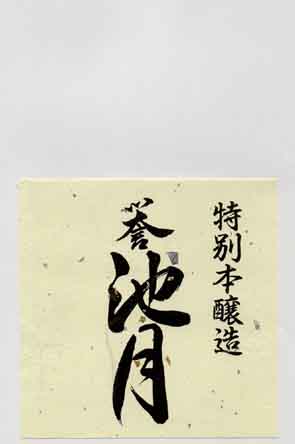 特別本醸造
誉池月